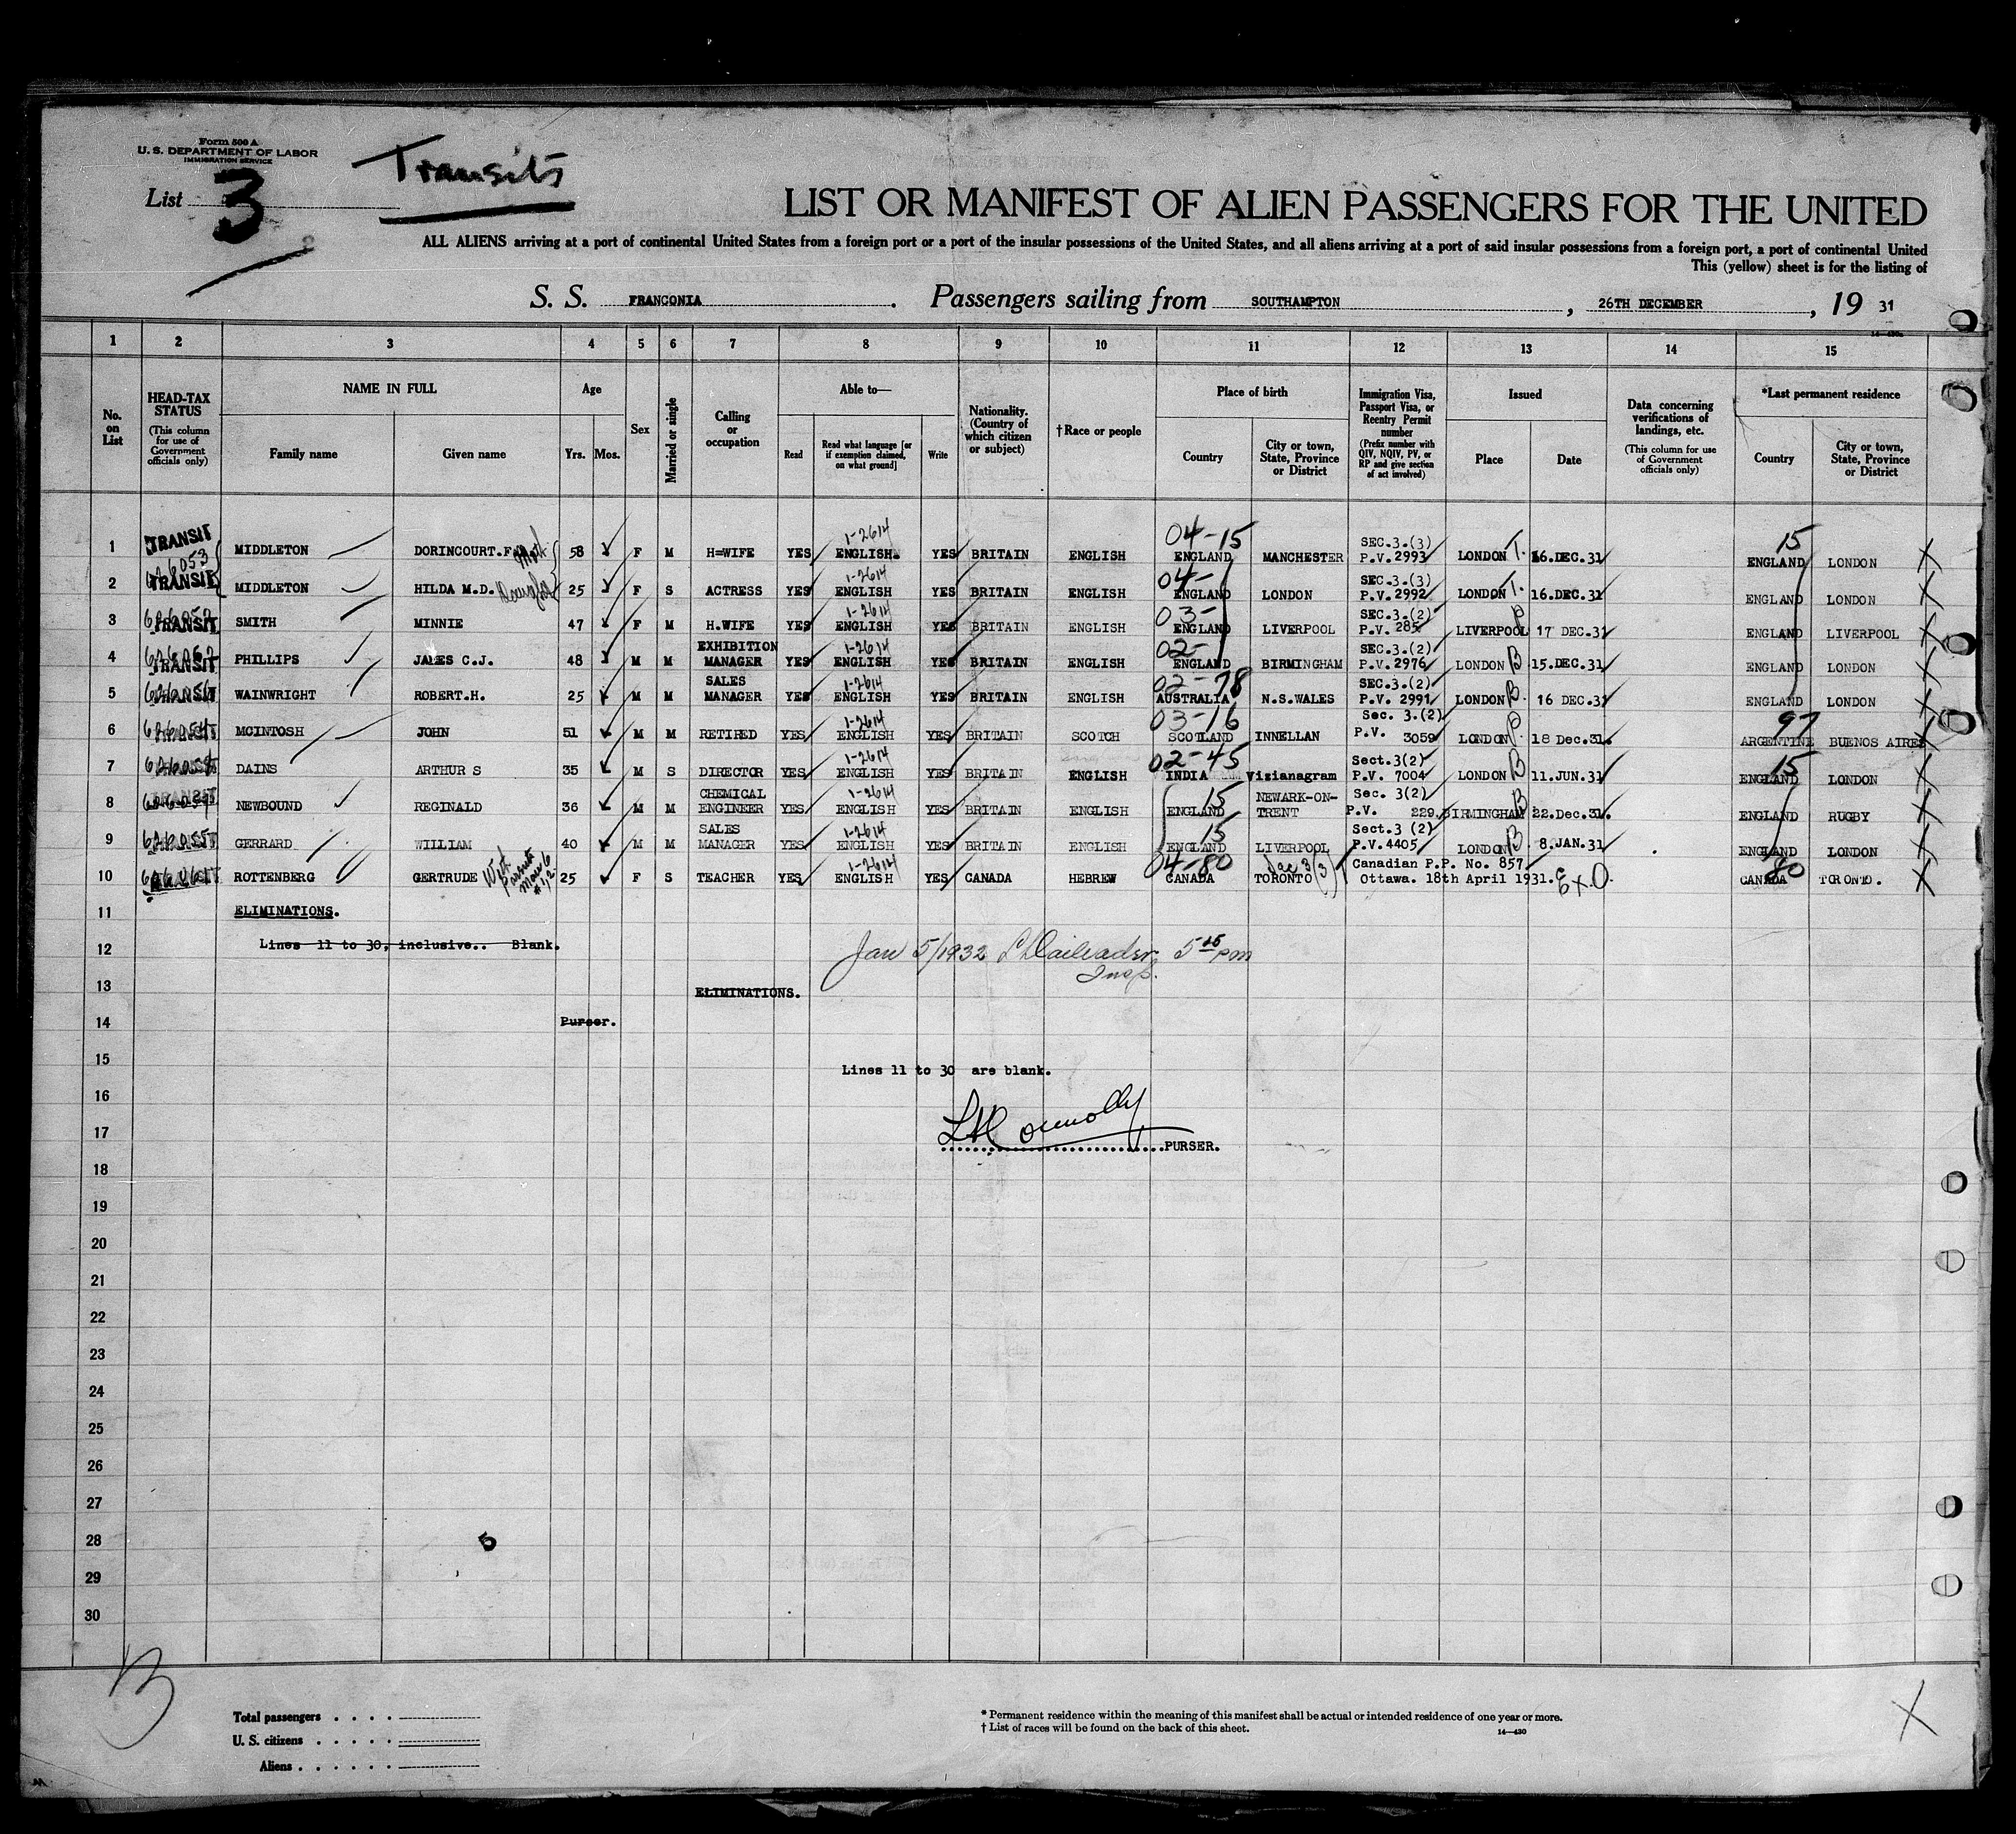 Form 500 A
U. S. DEPARTMENT OF LABOR
IMMIGRATION SERVICE
List 3
Transits
LIST OR MANIFEST OF ALIEN PASSENGERS FOR THE UNITED
ALL ALIENS arriving at a port of continental United States from a foreign port or a port of the insular possessions of the United States, and all aliens arriving at a port of said insular possessions from a foreign port, a port of continental United
This (yellow) sheet is for the listing of
S. S. FRANCONIA. Passengers sailing from SOUTHAMPTON, 26TH DECEMBER, 19 31
1 2 3 4 5 6 7 8 9 10 11 12 13 14 15
No. on List
HEAD-TAX STATUS (This column for use of Government officials only)
NAME IN FULL Family name Given name
Age Yrs. Mos.
Sex
Married or single
Calling or occupation
Able to— Read Read what language [or if exemption claimed, on what ground] Write
Nationality. (Country of which citizen or subject)
† Race or people
Place of birth Country City or town, State, Province or District
Immigration Visa, Passport Visa, or Reentry Permit number (Prefix number with QIV, NQIV, PV, or RP and give section of act involved)
Issued Place Date
Data concerning verifications of landings, etc. (This column for use of Government officials only)
*Last permanent residence Country City or town, State, Province or District
1 TRANSIT MIDDLETON DORINCOURT.F. 58 F M H=WIFE YES 1-2614 ENGLISH. YES BRITAIN ENGLISH 04-15 ENGLAND MANCHESTER SEC.3.(3) P.V. 2993 LONDON T. 16.DEC.31 15 ENGLAND LONDON X
626053
2 TRANSIT MIDDLETON HILDA M.D. 25 F S ACTRESS YES 1-2614 ENGLISH YES BRITAIN ENGLISH 04- ENGLAND LONDON SEC.3.(3) P.V. 2992 LONDON T. 16.DEC.31 ENGLAND LONDON X
3 TRANSIT SMITH MINNIE 47 F M H.WIFE YES 1-2614 ENGLISH YES BRITAIN ENGLISH 03- ENGLAND LIVERPOOL SEC.3.(2) P.V. 285 LIVERPOOL P 17 DEC.31 ENGLAND LIVERPOOL X
4 TRANSIT PHILLIPS JAMES C.J. 48 M M EXHIBITION MANAGER YES 1-2614 ENGLISH YES BRITAIN ENGLISH 02- ENGLAND BIRMINGHAM SEC.3.(2) P.V. 2976 LONDON B 15.DEC.31 ENGLAND LONDON X
5 TRANSIT WAINWRIGHT ROBERT.H. 25 M M SALES MANAGER YES 1-2614 ENGLISH YES BRITAIN ENGLISH 02-78 AUSTRALIA N.S.WALES SEC.3.(2) P.V. 2991 LONDON B. 16 DEC.31 ENGLAND LONDON X
6 TRANSIT MCINTOSH JOHN 51 M M RETIRED YES 1-2614 ENGLISH YES BRITAIN SCOTCH 03-16 SCOTLAND INNELLAN Sec. 3.(2) P.V. 3059 LONDON P. 18 Dec.31. 97 ARGENTINE BUENOS AIRES X
7 TRANSIT DAINS ARTHUR S 35 M S DIRECTOR YES 1-2614 ENGLISH YES BRITAIN ENGLISH 02-45 INDIA Vizianagram Sect.3(2) P.V. 7004 LONDON B 11.JUN.31 15 ENGLAND LONDON X
8 TRANSIT NEWBOUND REGINALD 36 M M CHEMICAL ENGINEER YES 1-2614 ENGLISH YES BRITAIN ENGLISH 15 ENGLAND NEWARK-ON-TRENT Sec. 3(2) P.V. 229. BIRMINGHAM B. 22.Dec.31. ENGLAND RUGBY X
9 TRANSIT GERRARD WILLIAM 40 M M SALES MANAGER YES 1-2614 ENGLISH YES BRITAIN ENGLISH 15 ENGLAND LIVERPOOL Sect.3 (2) P.V.4405 LONDON B 8.JAN.31 ENGLAND LONDON X
10 TRANSIT ROTTENBERG GERTRUDE With parents 25 F S TEACHER YES 1-2614 ENGLISH YES CANADA HEBREW 04-80 CANADA TORONTO Sec 3(3) Canadian P.P. No. 857. Ottawa. 18th April 1931. Ex.O. 80 CANADA TORONTO. X
11 ELIMINATIONS.
12 Lines 11 to 30, inclusive.. Blank.
Jan 5/1932 5 15 pm
Insp.
13 ELIMINATIONS.
14 Purser.
15 Lines 11 to 30 are blank.
16
17 L H Connolly PURSER.
18
19
20
21
22
23
24
25
26
27
28 5
29
30
B
X
Total passengers
U. S. citizens
Aliens
* Permanent residence within the meaning of this manifest shall be actual or intended residence of one year or more.
† List of races will be found on the back of this sheet.
14—430